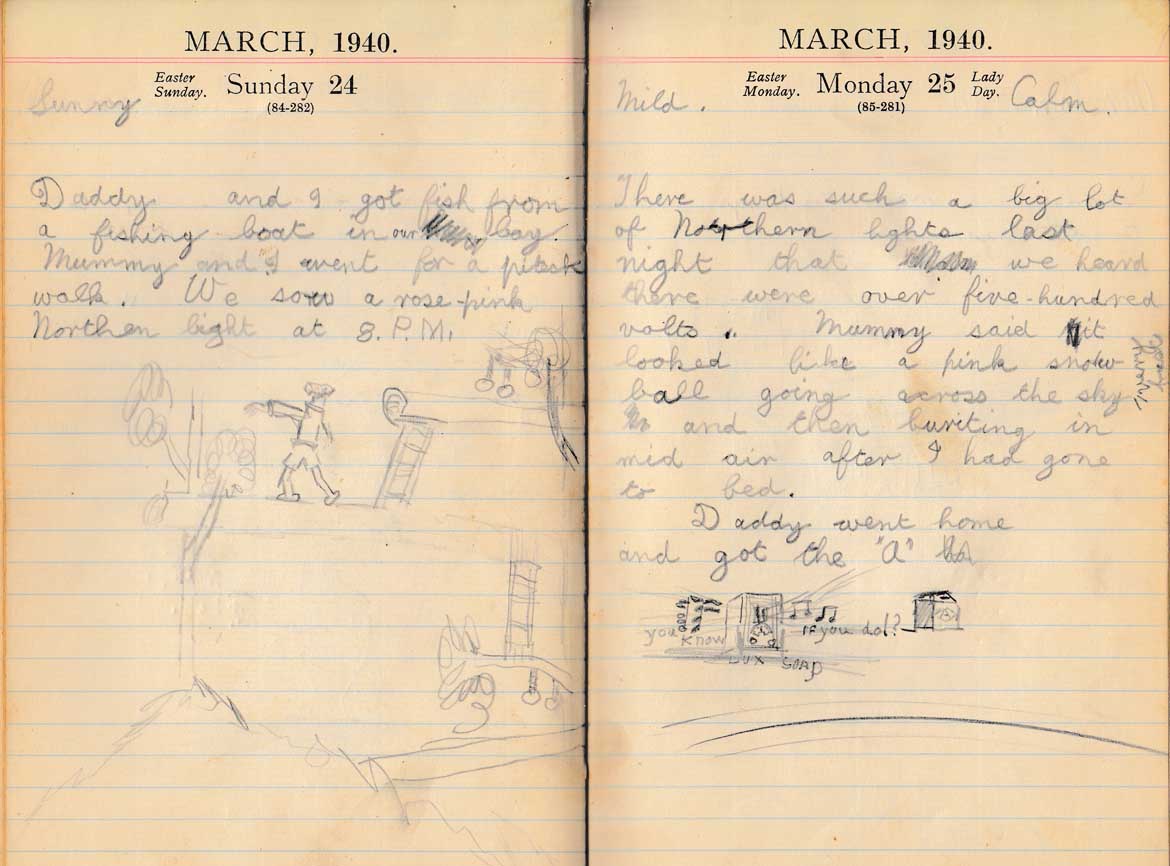 MARCH, 1940.
Easter Sunday. Sunday 24
(84-282)
Sunny
Daddy and I got fish from
a fishing boat in our bay.
Mummy and I went for a
walk. We saw a rose-pink
Northen light at 8. P.M.
MARCH, 1940.
Easter Monday. Monday 25 Lady Day.
(85-281)
Mild. Calm.
There was such a big lot
of Northern lights last
night that we heard
there were over five-hundred
volts. Mummy said it
looked like a pink snow
ball going across the sky
and then bursting in
mid air after I had gone
to bed.
Daddy went home
and got the "A"
you know If you do!?
LUX SOAP